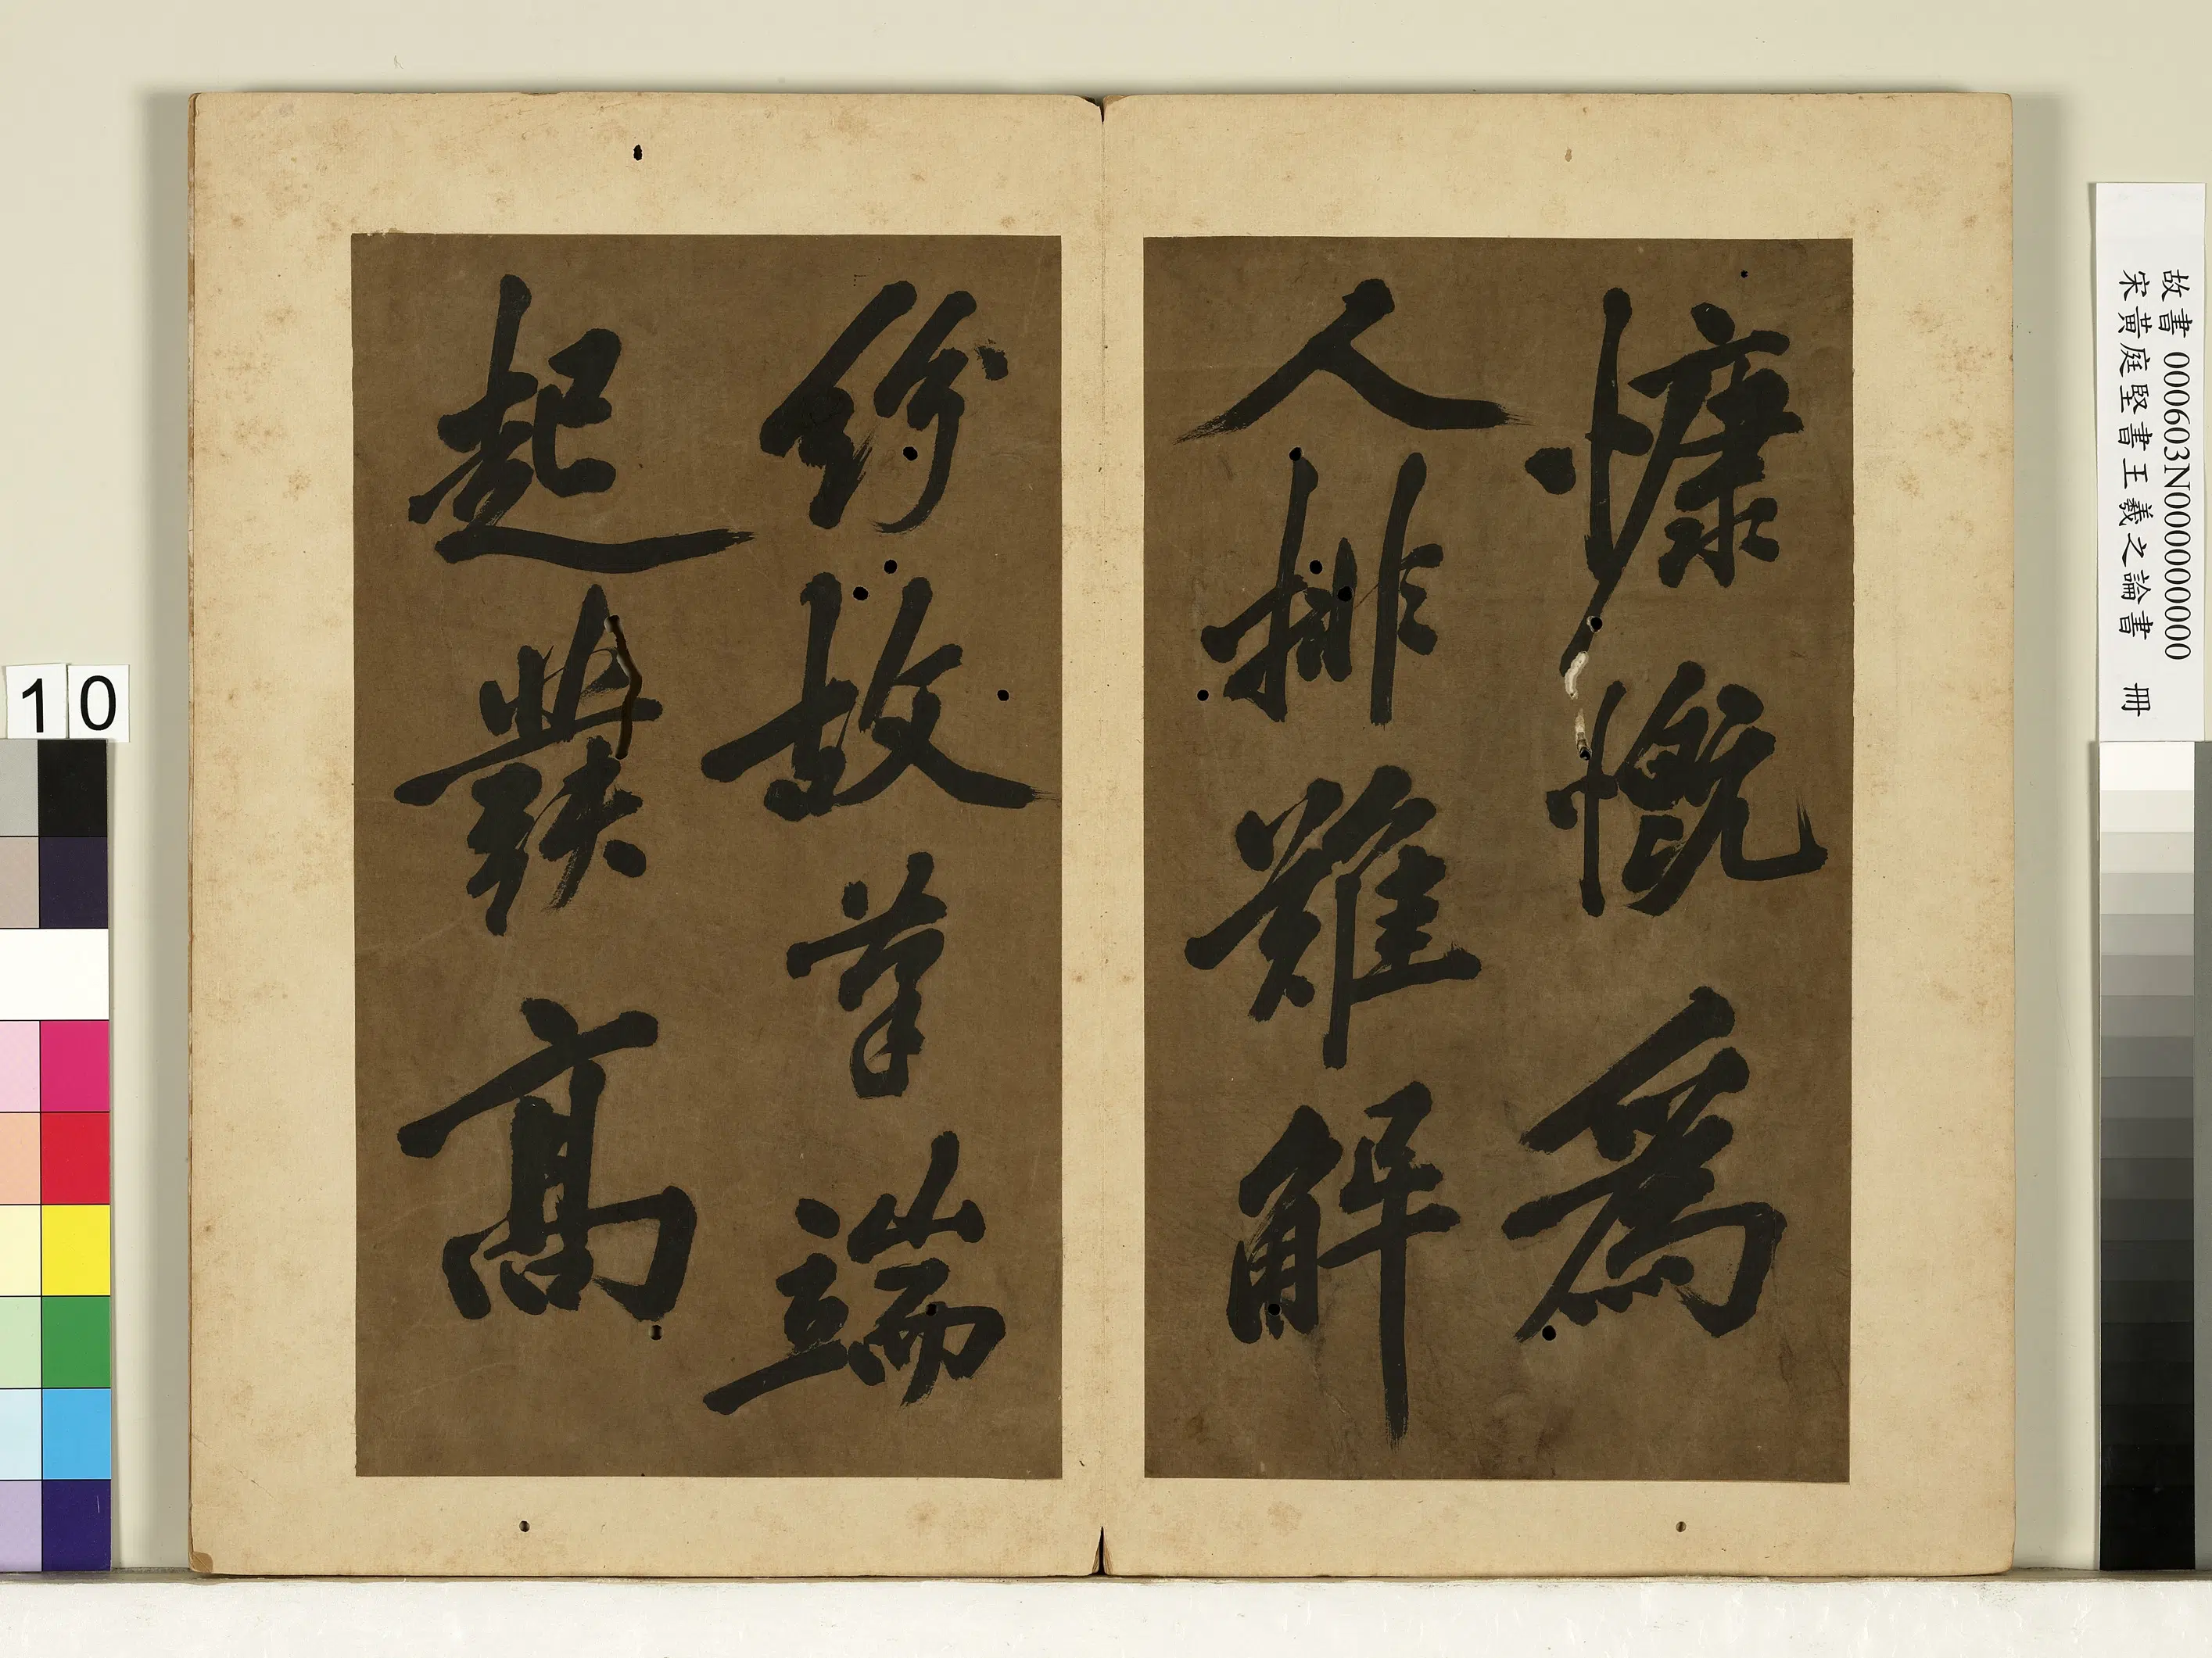 慷慨為
人排難解
紛故筆端
起發高
故書 000603N000000000
宋黃庭堅書王羲之論書 冊
10